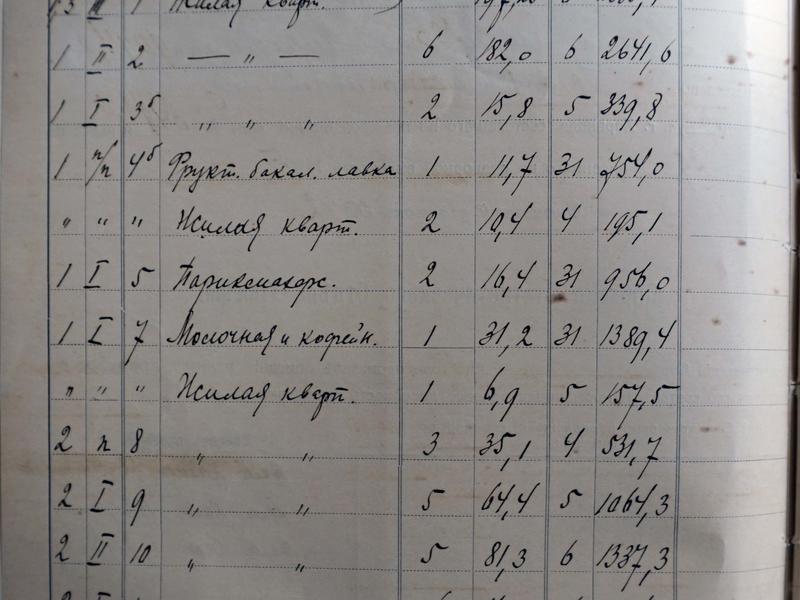 1 Жилая кварт.
1 II 2 — „ — 6 182,0 6 2641,6
1 I 3б „ „ „ 2 15,8 5 339,8
1 п/п 4б Фрукт. бакал. лавка 1 11,7 31 754,0
„ „ „ Жилая кварт. 2 10,4 4 195,1
1 I 5 Парикмахерс. 2 16,4 31 956,0
1 I 7 Молочная и кофейн. 1 31,2 31 1389,4
„ „ „ Жилая кварт. 1 6,9 5 157,5
2 п 8 „ „ 3 35,1 4 531,7
2 I 9 „ „ 5 64,4 5 1064,3
2 II 10 „ „ 5 81,3 6 1337,3